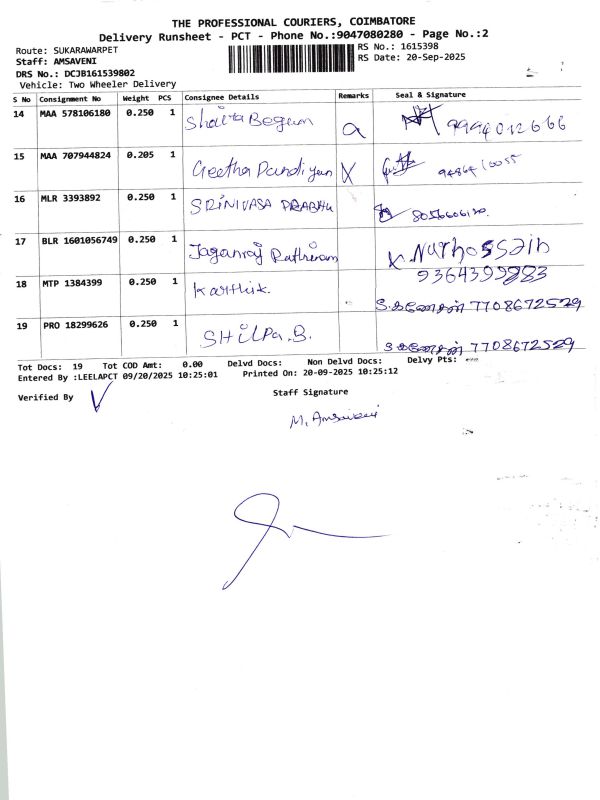 THE PROFESSIONAL COURIERS, COIMBATORE
Delivery Runsheet - PCT - Phone No.:9047080280 - Page No.:2
Route: SUKARAWARPET
RS No.: 1615398
Staff: AMSAVENI
RS Date: 20-Sep-2025
DRS No.: DCJB161539802
Vehicle: Two Wheeler Delivery
S No Consignment No Weight PCS Consignee Details Remarks Seal & Signature
14 MAA 578106180 0.250 1 Begum a 9994012666
15 MAA 707944824 0.205 1 Geetha Pandiyan X
16 MLR 3393892 0.250 1 SRINIVASA PRABHU
17 BLR 1601056749 0.250 1 Jaganraj X. Nurhossain
9364399883
18 MTP 1384399 0.250 1 Karthik. S.கணேசன் 7708672529
19 PRO 18299626 0.250 1 SHilPa.B. S.கணேசன் 7708672529
Tot Docs: 19 Tot COD Amt: 0.00 Delvd Docs: Non Delvd Docs: Delvy Pts:
Entered By :LEELAPCT 09/20/2025 10:25:01 Printed On: 20-09-2025 10:25:12
Verified By
Staff Signature
M. Amsaveni